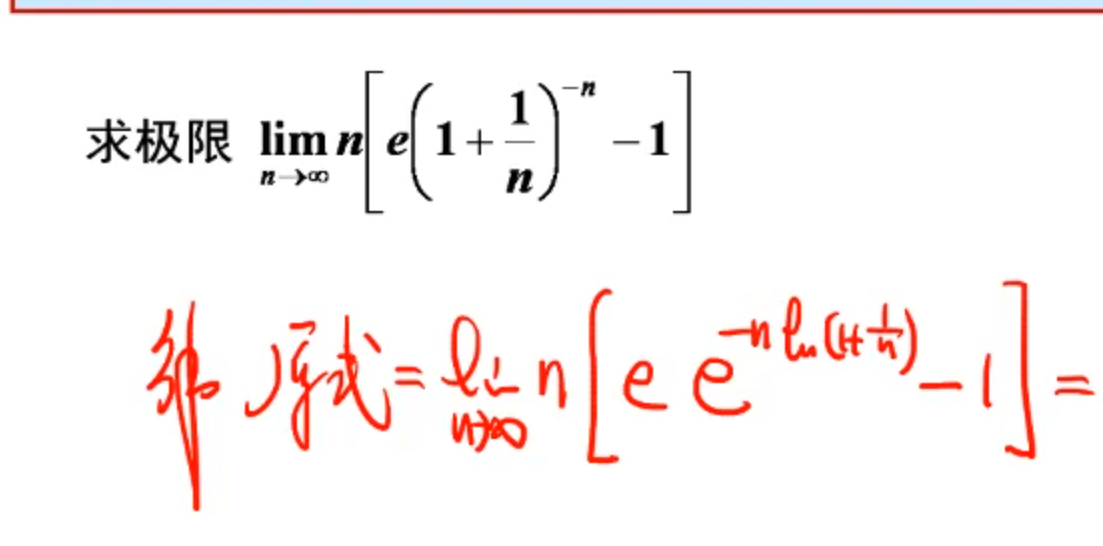 求极限 lim_{n→∞} n[e(1+1/n)^{-n} −1]
解 原式 = lim_{n→∞} n[e e^{-n ln(1+1/n)} −1] =